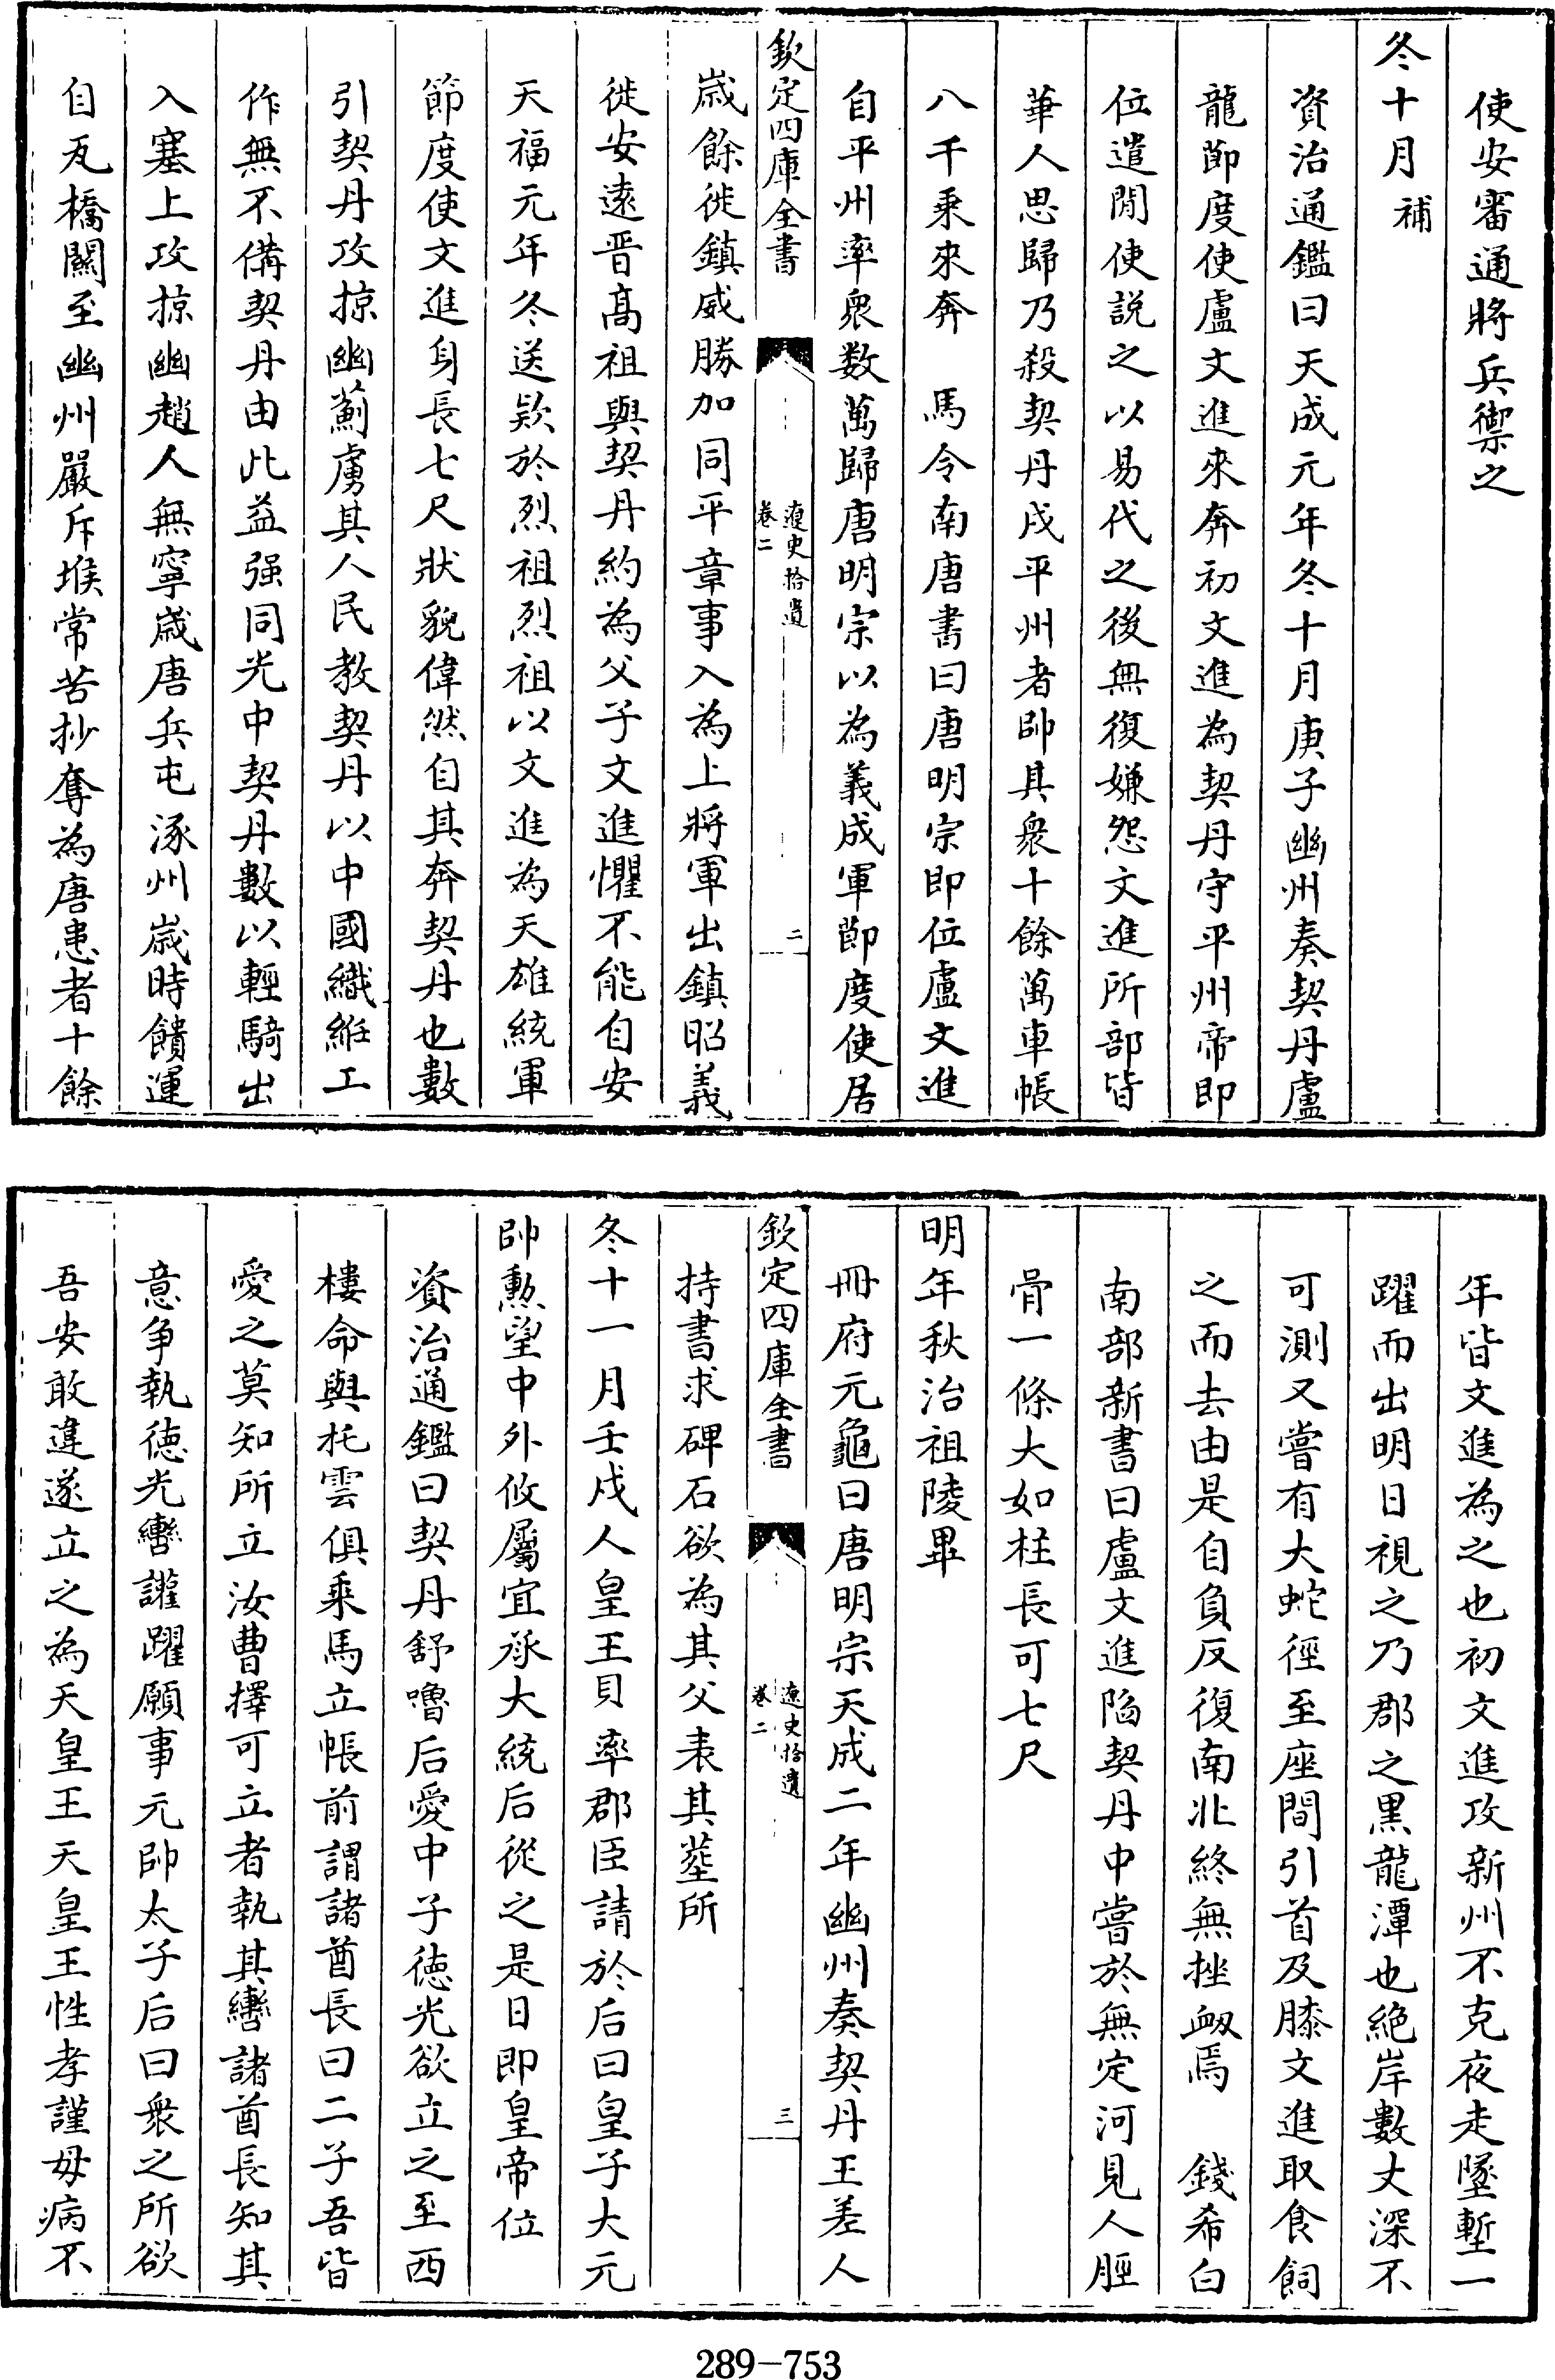 使安審通將兵禦之
冬十月補
資治通鑑曰天成元年冬十月庚子幽州奏契丹盧
龍節度使盧文進來奔初文進為契丹守平州帝即
位遣間使説之以易代之後無復嫌怨文進所部皆
華人思歸乃殺契丹戍平州者帥其衆十餘萬車帳
八千乘來奔　馬令南唐書曰唐明宗即位盧文進
自平州率衆数萬歸唐明宗以為義成軍節度使居
欽定四庫全書
遼史拾遺
卷二
二
歲餘徙鎮威勝加同平章事入為上將軍出鎮昭義
徙安遠晋高祖與契丹約為父子文進懼不能自安
天福元年冬送欵於烈祖烈祖以文進為天雄統軍
節度使文進身長七尺狀貌偉然自其奔契丹也數
引契丹攻掠幽薊虜其人民教契丹以中國織維工
作無不備契丹由此益强同光中契丹數以輕騎出
入塞上攻掠幽趙人無寧歲唐兵屯涿州歲時饋運
自瓦橋關至幽州嚴斥堠常苦抄奪為唐患者十餘
年皆文進為之也初文進攻新州不克夜走墜塹一
躍而出明日視之乃郡之黒龍潭也絶岸數丈深不
可測又嘗有大蛇徑至座間引首及膝文進取食飼
之而去由是自負反復南北終無挫衂焉　錢希白
南部新書曰盧文進陷契丹中嘗於無定河見人脛
骨一條大如柱長可七尺
明年秋治祖陵畢
冊府元龜曰唐明宗天成二年幽州奏契丹王差人
欽定四庫全書
遼史拾遺
卷二
三
持書求碑石欲為其父表其塟所
冬十一月壬戍人皇王貝率郡臣請於后曰皇子大元
帥勲望中外攸屬宜承大統后從之是日即皇帝位
資治通鑑曰契丹舒嚕后愛中子徳光欲立之至西
樓命與托雲俱乘馬立帳前謂諸酋長曰二子吾皆
愛之莫知所立汝曹擇可立者執其轡諸酋長知其
意争執徳光轡讙躍願事元帥太子后曰衆之所欲
吾安敢違遂立之為天皇王天皇王性孝謹母病不
289-753